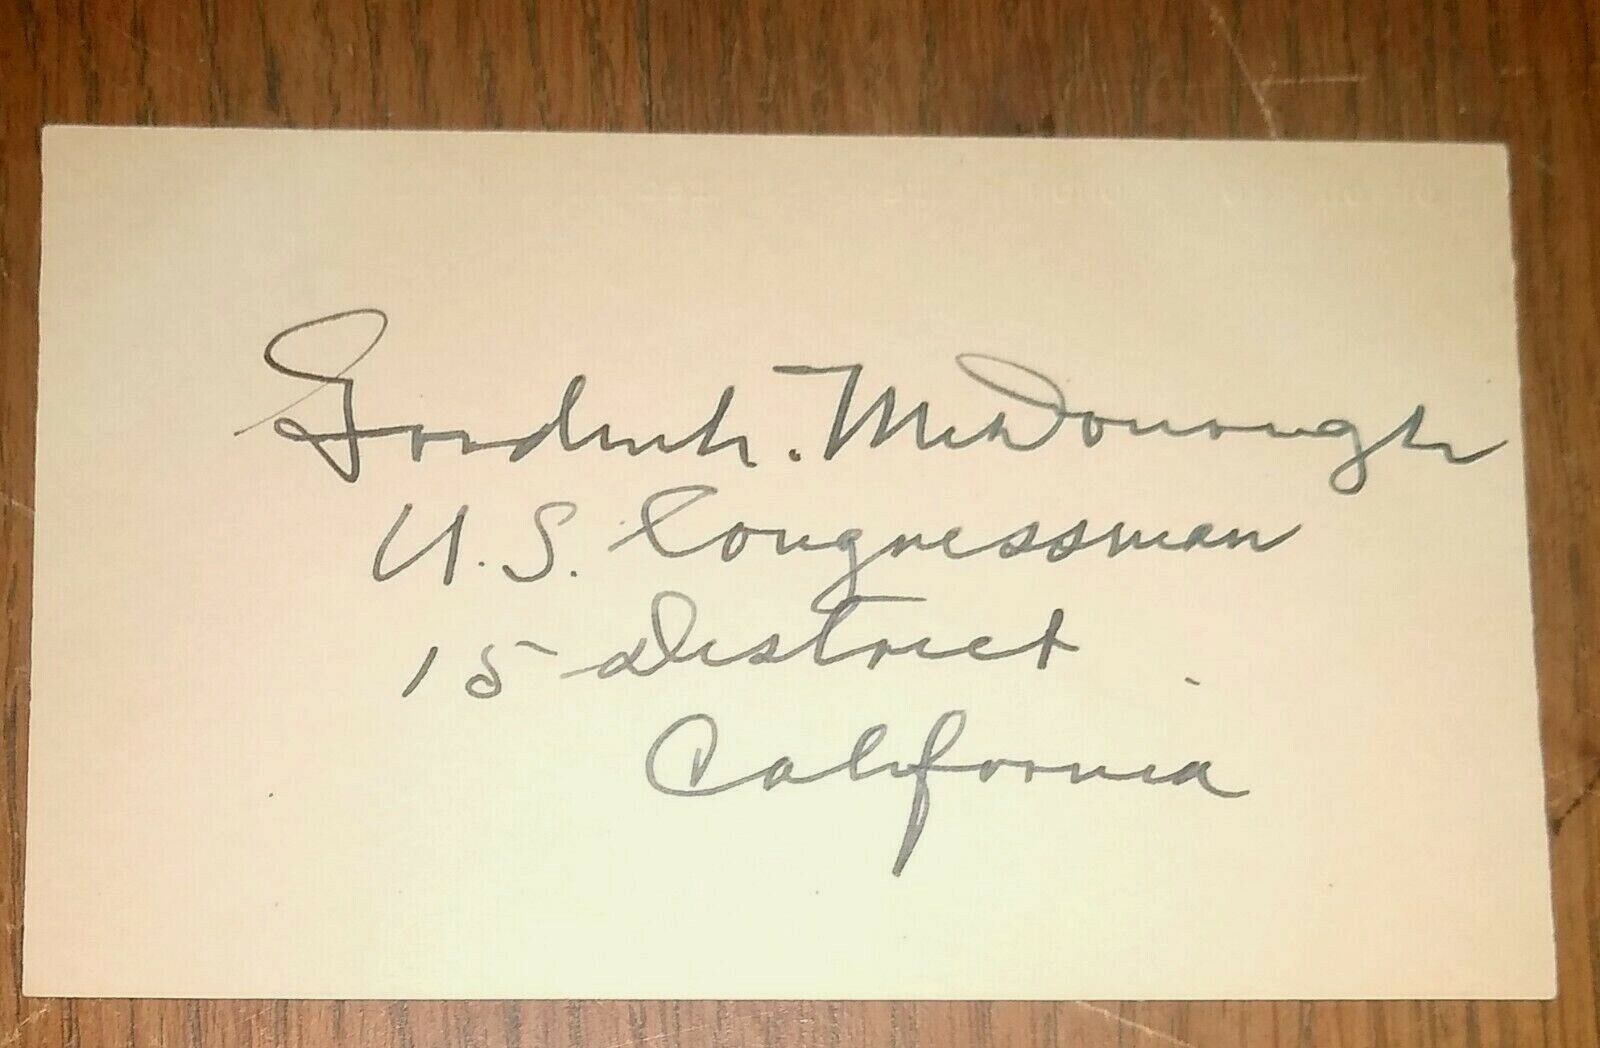 Gordon L. McDonough
U.S. Congressman
15 District
California